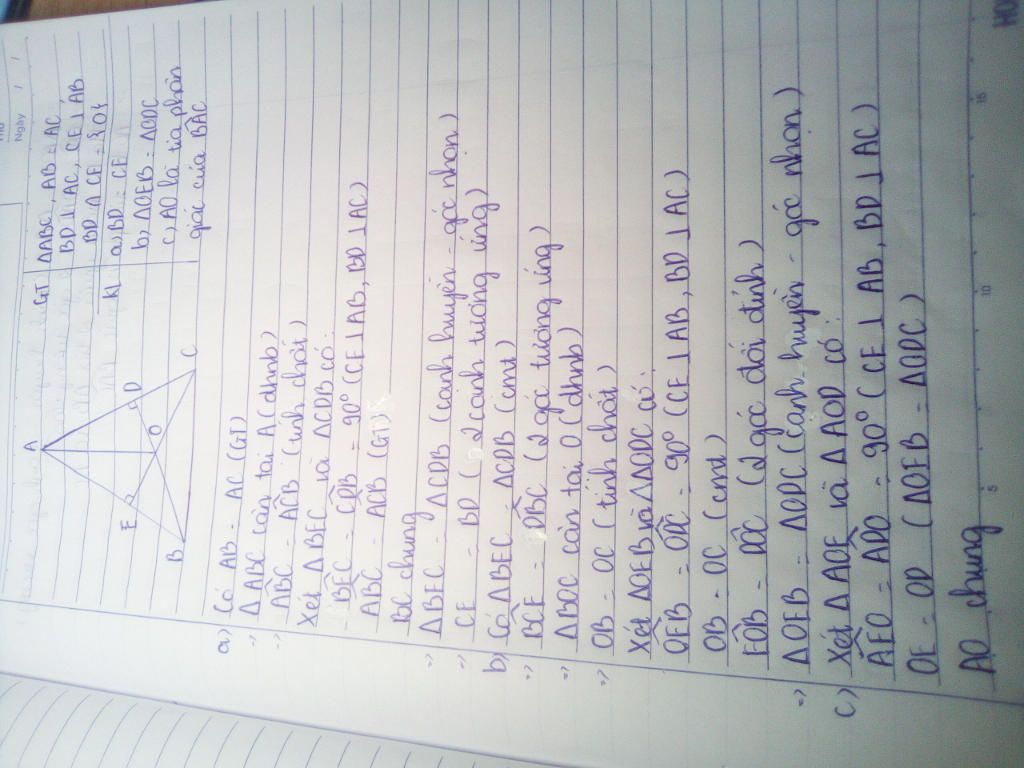 Thứ
Ngày / /
A
E
D
O
B
C
GT
ΔABC, AB = AC
BD ⊥ AC, CE ⊥ AB
BD ∩ CE = {O}
KL
a, BD = CE
b, ΔOEB = ΔODC
c, AO là tia phân
giác của BÂC
a,) Có AB = AC (GT)
=) ΔABC cân tại A (dhnb)
=) ABC = ACB (tính chất)
Xét ΔBEC và ΔCDB có:
BEC = CDB = 90° (CE ⊥ AB, BD ⊥ AC)
ABC = ACB (GT)
BC chung
=) ΔBEC = ΔCDB (cạnh huyền - góc nhọn)
=) CE = BD (2 cạnh tương ứng)
b) Có ΔBEC = ΔCDB (cmt)
=) BCE = DBC (2 góc tương ứng)
=) ΔBOC cân tại O (dhnb)
=) OB = OC (tính chất)
Xét ΔOEB và ΔODC có:
OEB = ODC = 90° (CE ⊥ AB, BD ⊥ AC)
OB = OC (cmt)
EOB = DOC (2 góc đối đỉnh)
=) ΔOEB = ΔODC (cạnh huyền - góc nhọn)
c) Xét ΔAOE và ΔAOD có:
AEO = ADO = 90° (CE ⊥ AB, BD ⊥ AC)
OE = OD (ΔOEB = ΔODC)
AO chung
5 10 15